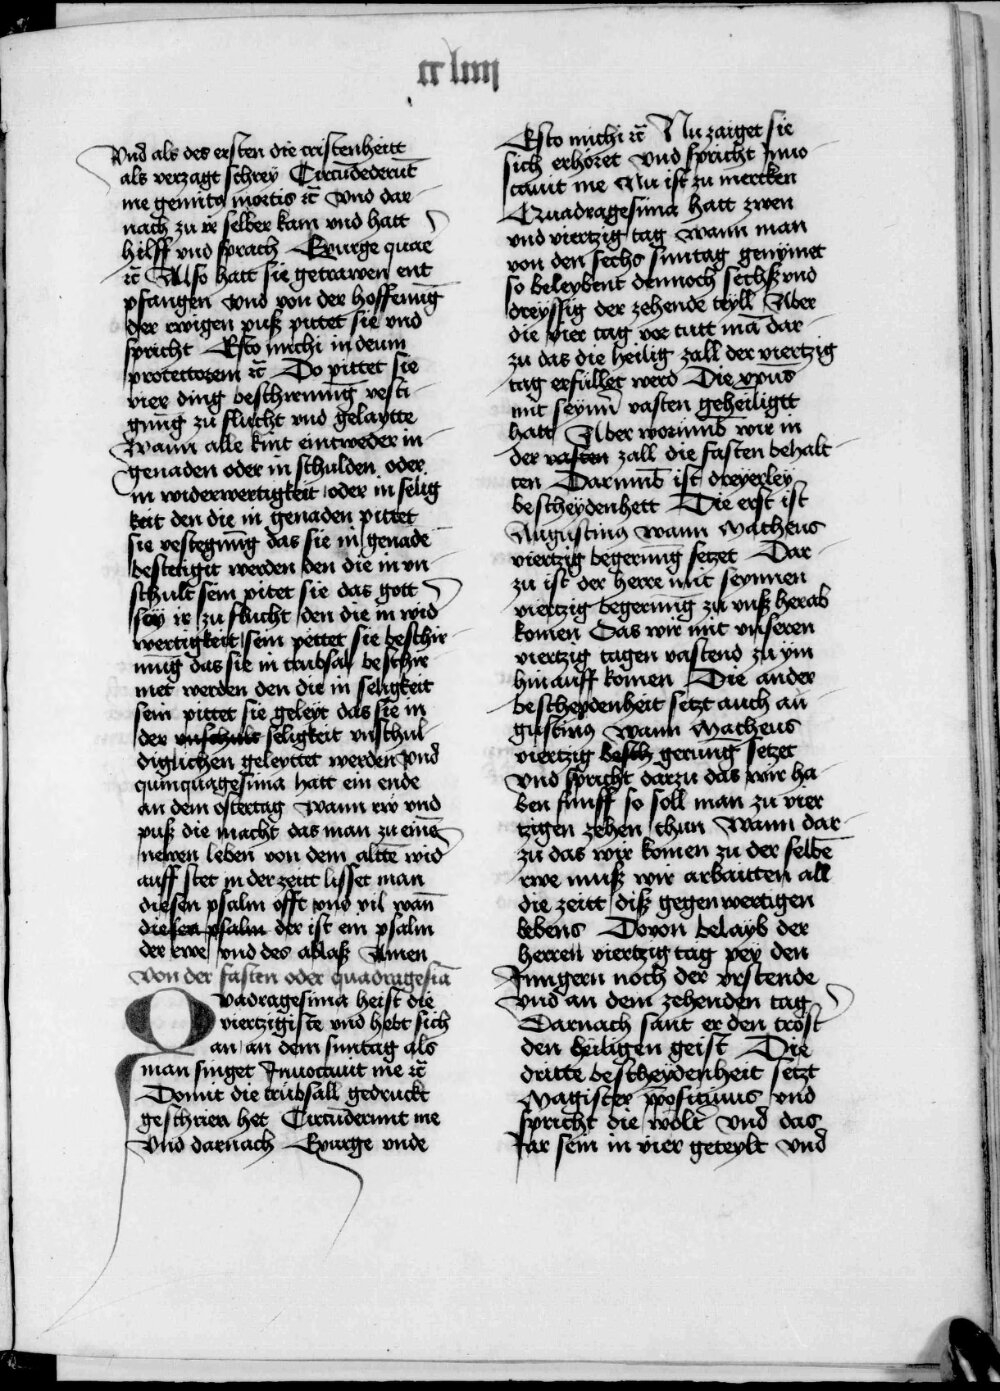 cc liiij
Vnd als des ersten die cristenheitt
als verzagt schrey Circūdederūt
me gemitꝯ mortis ꝛc̄ Vnd dar-
nach zu ir selber kam vnd hatt
hilff vnd sprach Exurge quae
ꝛc̄ Also hatt sie getrawen ent
pfangen Vnd von der hoffenūg
der ewigen puß pittet sie vnd
spricht Esto michi in deum
protectorem ꝛc̄ Do pittet sie
vier ding beschirmūg vesti-
gūng zu flucht vnd gelaytte
Wann alle kint eintweder in-
genaden oder in schulden oder
in widerwertigkeit oder in selig
keit den die in genaden pittet
sie vestegūng das sie in genade
bestetigit werden den die in vn-
schult sein pitet sie das gott
sey ir zu flucht den die in wid
wertigkeit sein pettet sie beschir-
mūg das sie in trubsal beschir-
met werden den die in seligkeit
sein pittet sie geleyt das sie in
der vnschult seligkeit vnschul-
diglichen geleyttet werden Vnd
quinquagesima hatt ein ende
an dem ostertag Wann rw vnd
puß die macht das man zu eine
newen leben von dem altē wid
auff stet in der zeitt lisset man
diesen psalm offt vnd vil wān
diesen psalm der ist ein psalm
der rwe vnd des ablaß Amen
Von der fasten oder quadragesiā
Quadragesima heist die
viertzigiste vnd hebt sich
an an dem suntag als
man singet Inuocauit me ꝛc̄
Domit die trubsall gedruckt
geschrien het Circūderunt me
Vnd darnach Exurge vnde
Esto michi ꝛc̄ Nu zaiget sie
sich erhöret vnd spricht Inuo-
cauit me Nu ist zu mercken
Quadragesima hatt zwen
vnd viertzig tag Wann man
von den sechs suntag genymet
so beleybent dennoch sechß vnd
dreyssig der zehende teyll Aber
die vier tag vor tutt mā dar-
zu das die heilig zall der viertzig
tag erfüllet werd Die xpūs
mit seynn̄ vasten geheiligtt
hatt Aber worumb wir in
der vasten zall die fasten behalt-
ten Darumb ist dreyerley
bescheydenhett Die erst ist
Augustinus Wann Matheus
viertzig begerūng setzet Dar-
zu ist der herre mit seynnen
viertzig begerūng zu vnß herab
komen Das wir mit vnseren
viertzig tagen vastend zu ym
hinauff komen Die ander
bescheydenheit setzt auch au
gustinꝯ Wann Matheus
viertzig besch gerung setzet
Vnd spricht darzu das wir ha-
ben funff so soll man zu vier
tzigen zehen thun Wann dar-
zu das wir komen zu der selbē
rwe muß wir arbaitten all
die zeitt diß gegenwertigen
lebens Dovon belayb der
herren viertzig tag pey den
Jungern noch der vrstende
Vnd an dem zehenden tag
Darnach sant er den trost
den heiligen geist Die
dritte bescheydenheit setzt
Magister p̄positiuus vnd
spricht die wolt Vnd das
Jar sein in vier geteylt Vnd